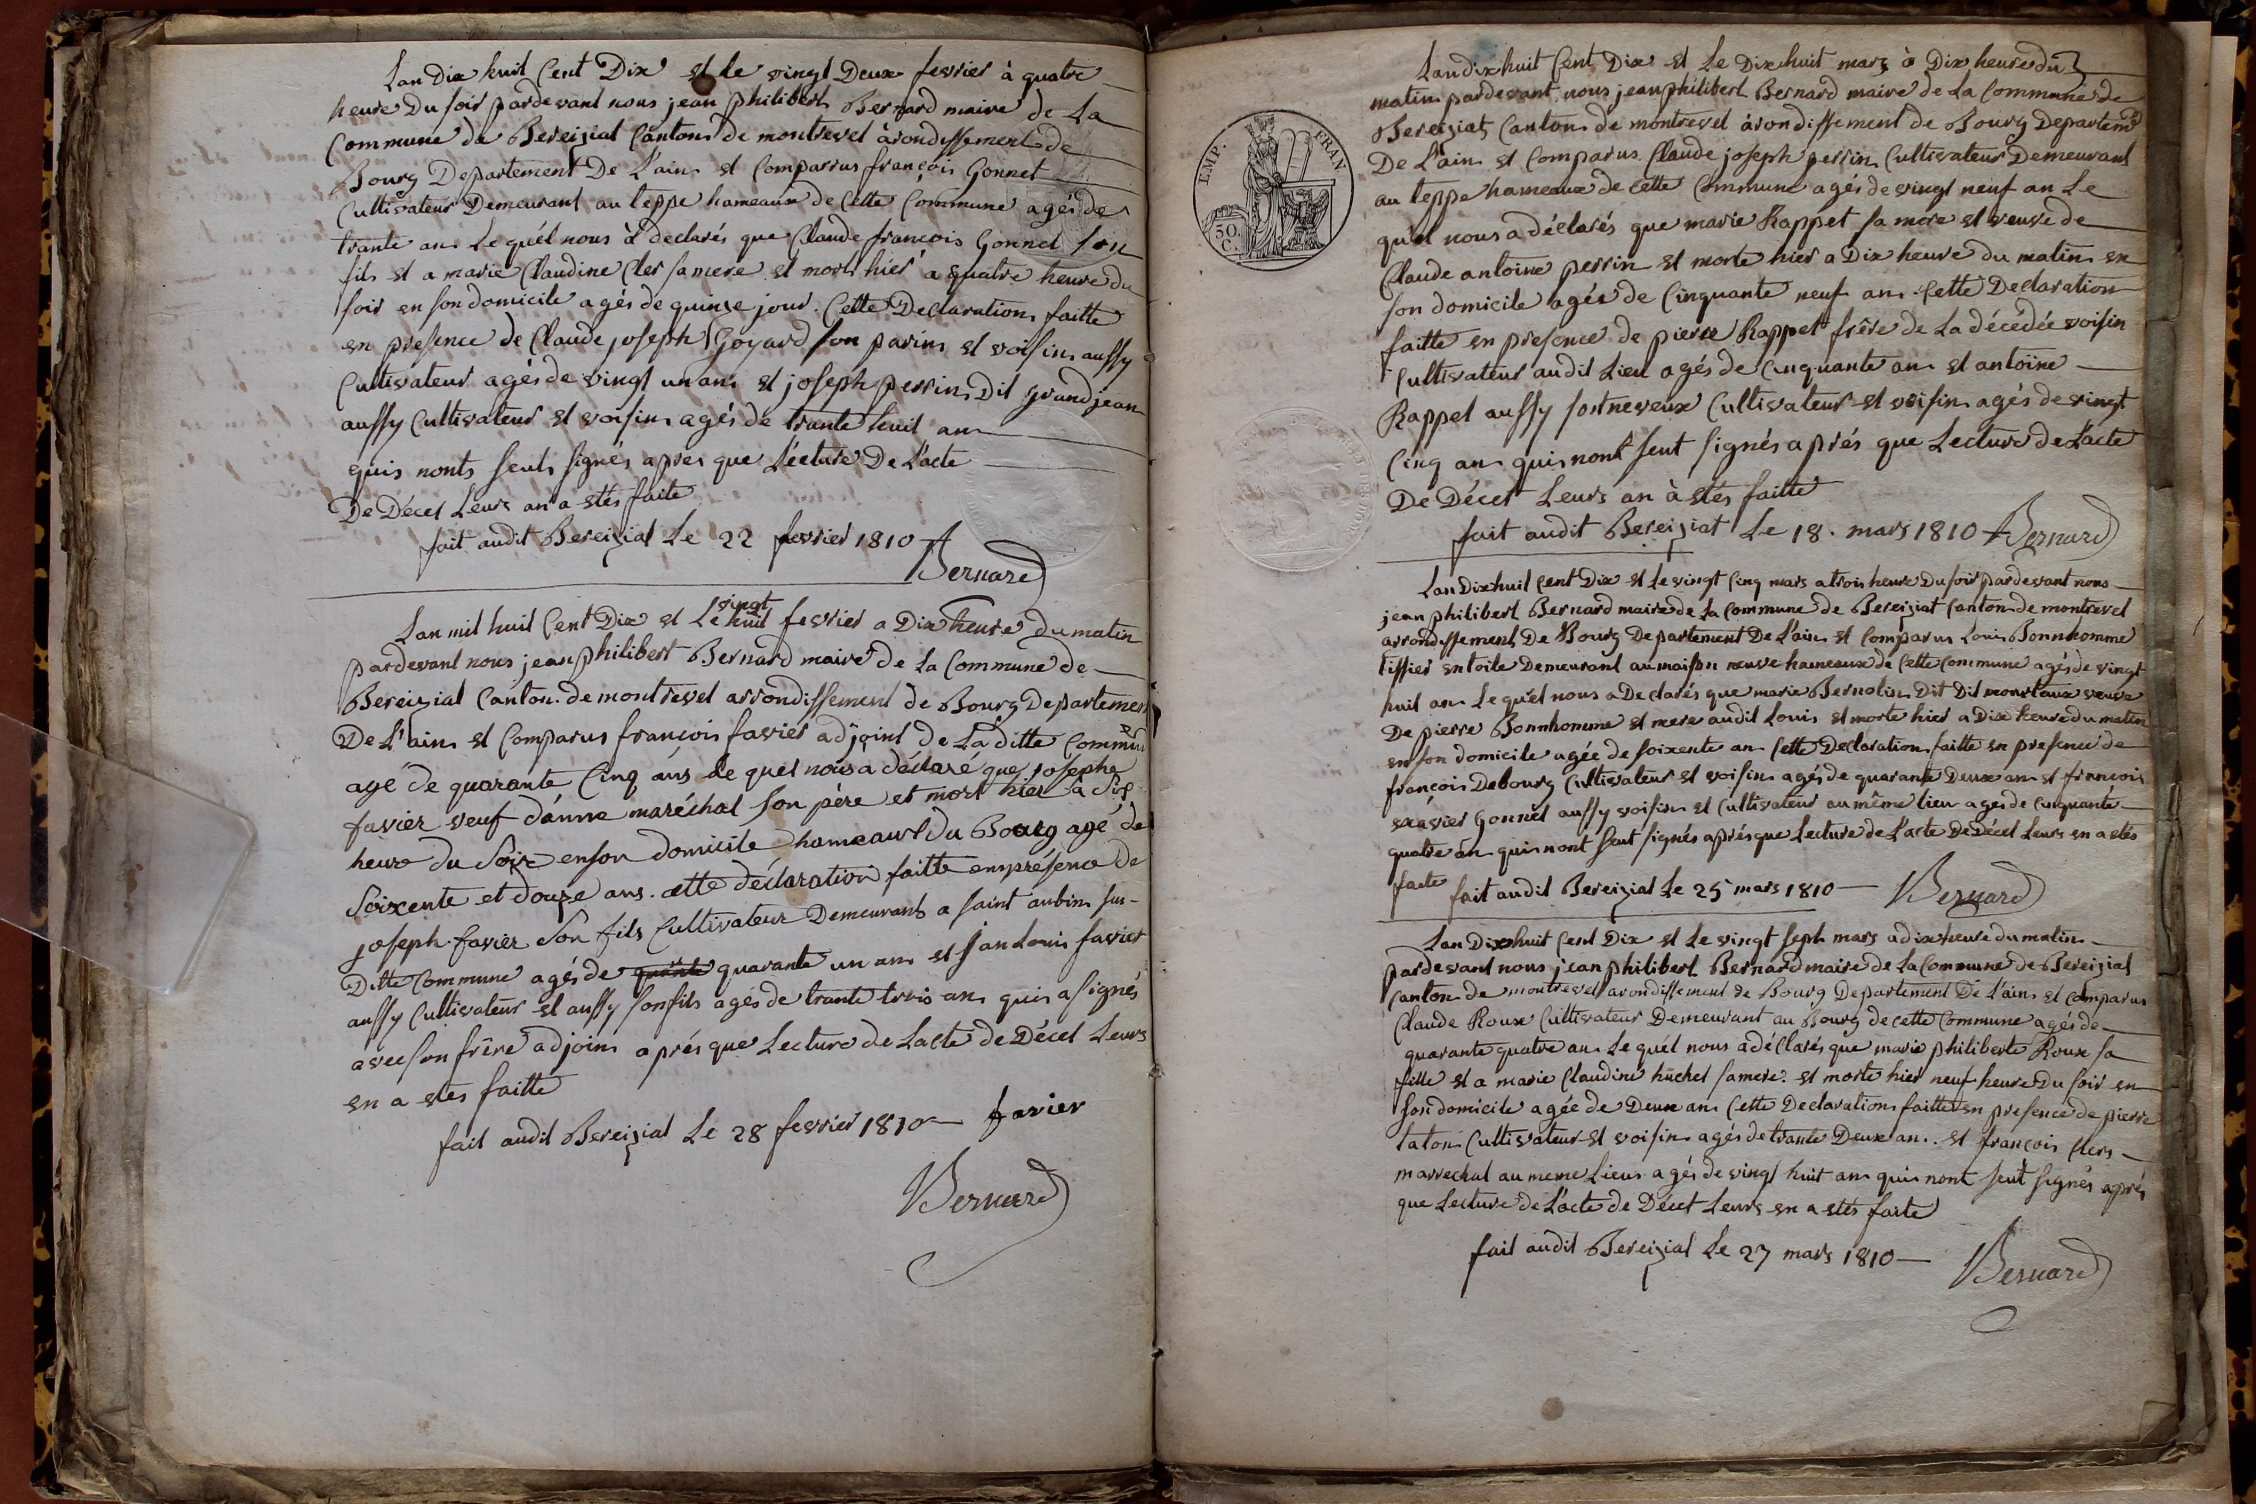 Lan dix huit Cent Dix et le vingt Deux fevrier à quatre
heure Du soir pardevant nous jean philibert Bernard maire de La
Commune de Bereiziat Canton de montrevel àrondissement de
Bourg Departement De L'ain et Comparrus françois Gonnet
Cultivateur Demeurant au teppe hameaux de Cette Commune agés de
trante an Le quél nous à declarés que Claude françois Gonnet son
fils et a marie Claudine Cler sa mere et mort hier a quatre heure du
soir en son domicile agés de quinze jour. Cette Declaration faitte
en presence de Claude joseph Goyard son parin et voisin aussy
Cultivateur agés de vingt un an et joseph perrin Dit grandjean
aussy Cultivateur et voisin agés de trante huit an
quis nonts seuts signés apres que L'écture De L'acte
De Décet Leurs an a etés faite
fait audit Bereiziat Le 22 fevrier 1810
Bernard
Lan mil huit Cent Dix et Le vingt huit fevrier a Dix heure du matin
pardevant nous jean philibert Bernard maire de La Commune de
Bereiziat Canton de montrevel arrondissement de Bourg Departement
De L'ain et Comparus françois favier adjoint de La ditte Commune
agé de quarante Cinq ans le quel nous a déclaré que joseph
favier veuf d'anne maréchal son père et mort hier a six
heure du soir en son domicile hameaux du Bourg agé de
soixente et douze ans. cette déclaration faitte en présence de
joseph favier son fils Cultivateur Demeurant a saint aubin sus-
Ditte Commune agés de quarante un an et jan Louis favier
aussy Cultivateur et aussy son fils agés de trante trois an quis a signés
avec son frêre adjoin aprés que Lecture de Lacte de Décet Leurs
en a etés faitte
fait audit Bereiziat Le 28 fevrier 1810 favier
Bernard
EMP. FRAN
50. C.
Lan dix huit Cent Dix et Le Dix huit mars à Dix heure du
matin pardevant nous jean philibert Bernard maire de La Commune de
Bereiziat Canton de montrevel àrondissement de Bourg Departemt
De L'ain et Comparus Claude joseph perrin Cultivateur Demeurant
au teppe hameaux de Cette Commune agés de vingt neuf an Le
quél nous a déclarés que marie Rappet sa mere et veuve de
Claude antoine perrin et morte hier a Dix heure du matin en
son domicile agés de Cinquante neuf an Cette Declaration
faitte en presence de pierre Rappet frêre de La décédée voisin
Cultivateur audit Lieu agés de Cinquante an et antoine
Rappet aussy son neveux Cultivateur et voisin agés de vingt
Cinq an quis nont seut signés aprés que Lecture de L'acte
De Décet Leurs an à etés faitte
fait audit Bereiziat Le 18. mars 1810 Bernard
Lan Dix huit Cent Dix et Le vingt Cinq mars a trois heure Du soir pardevant nous
jean philibert Bernard maire de La Commune de Bereiziat Canton de montrevel
arrondissement De Bourg Departement De L'ain et Comparus Louis Bonnhomme
tissier en toile Demeurant au maison neuve hameaux de Cette Commune agés de vingt
huit an Le quel nous a Declarés que marie Bernolin Dit Dit veuve
De pierre Bonnhomme et mere audit Louis et morte hier a Dix heure du matin
en son domicile agée de soixente an Cette Declaration faitte en presence de
françois Debourg Cultivateur et voisin agés de quarante Deux an et francois
xavier Gonnet aussy voisin et Cultivateur au même lieu agés de Cinquante
quatre an quis nont seut signés aprés que Lecture de L'acte De Décet Leurs en a etés
faite fait audit Bereiziat Le 25 mars 1810 Bernard
Lan Dix huit Cent Dix et Le vingt sept mars a dix heure du matin
pardevant nous jean philibert Bernard maire de La Commune de Bereiziat
Canton de montrevel arondissement de Bourg Departement De L'ain et Comparus
Claude Roux Cultivateur Demeurant au Bourg de cette Commune agés de
quarante quatre an Le quél nous a déclarés que marie philiberte Roux sa
fille et a marie Claudine huchet sa mere. et morte hier neuf heure Du soir en
son domicile agée de Deux an Cette Declaration faitte en presence de pierre
taton Cultivateur et voisin agés de trante Deux an. et françois Clers
marrechal au meme Lieus agés de vingt huit an quis nont seut signés aprés
que Lecture de L'acte de Décet Leurs en a etés faite
fait audit Bereiziat Le 27 mars 1810 Bernard